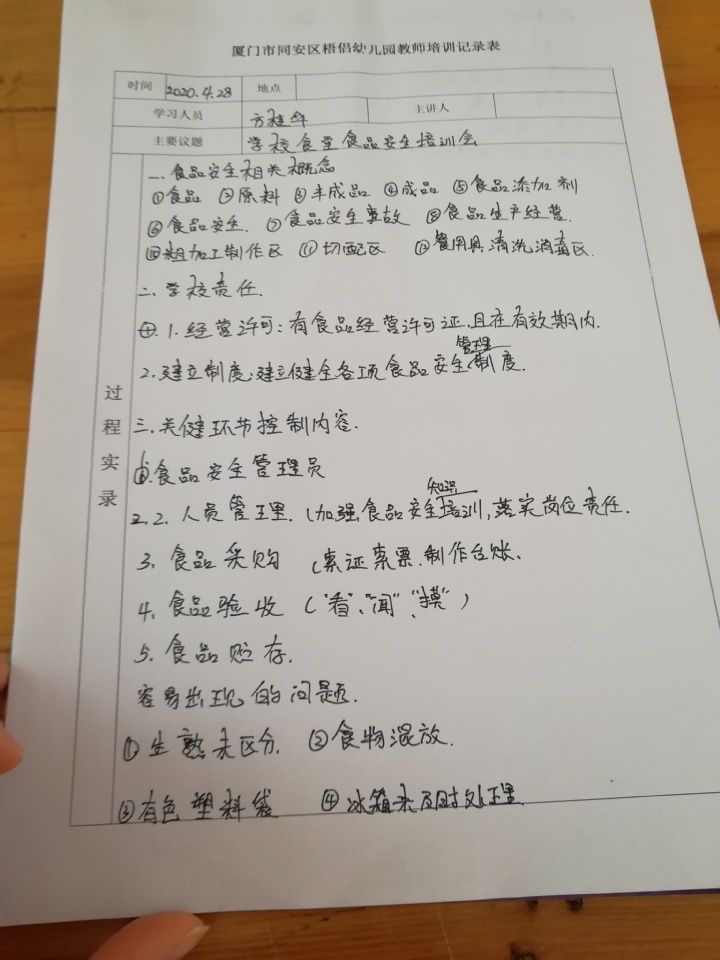 厦门市同安区梧侣幼儿园教师培训记录表
时间 2020.4.28 地点
学习人员 方桂华 主讲人
主要议题 学校食堂食品安全培训会
过程实录
一、食品安全相关概念
①食品 ②原料 ③半成品 ④成品 ⑤食品添加剂
⑥食品安全. ⑦食品安全事故 ⑧食品生产经营.
⑩粗加工制作区 ⑪切配区 ⑫餐用具清洗消毒区.
二、学校责任.
1.经营许可:有食品经营许可证,且在有效期内.
2.建立制度:建立健全各项食品安全管理制度.
三.关健环节控制内容.
食品安全管理员
2.人员管理.(加强食品安全知识培训,落实岗位责任.
3.食品采购 (索证索票.制作台账.
4.食品验收 ("看"、"闻"、"摸")
5.食品贮存.
容易出现的问题.
①生熟未区分. ②食物混放.
③有色塑料袋 ④冰箱未及时处理.